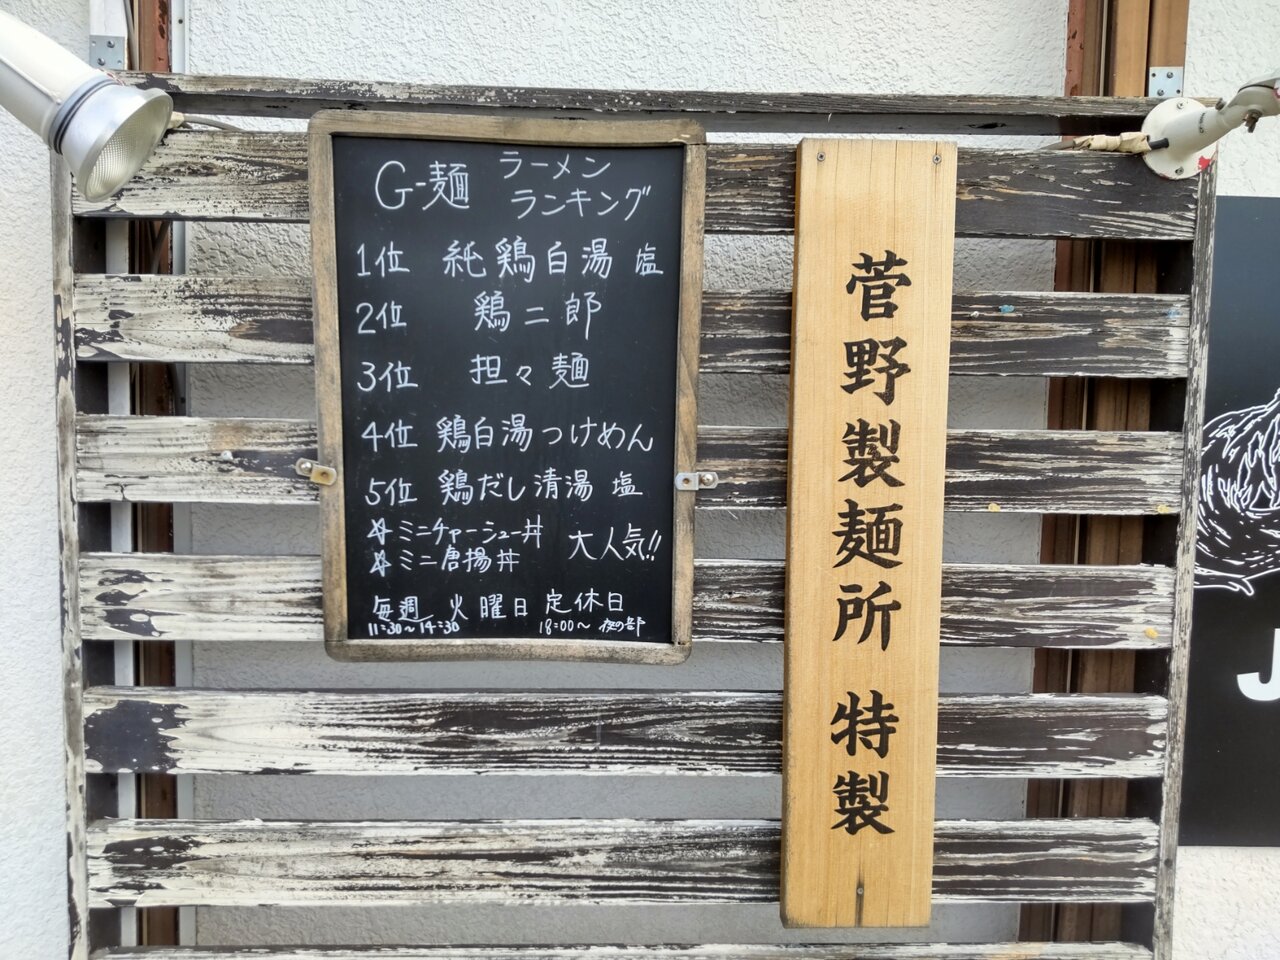 G-麺 ラーメン
ランキング
1位 純鶏白湯 塩
2位 鶏二郎
3位 担々麺
4位 鶏白湯つけめん
5位 鶏だし清湯 塩
☆ミニチャーシュー丼
☆ミニ唐揚丼 大人気!!
毎週 火曜日 定休日
11:30～14:30 18:00～ 夜の部
菅野製麺所 特製
J